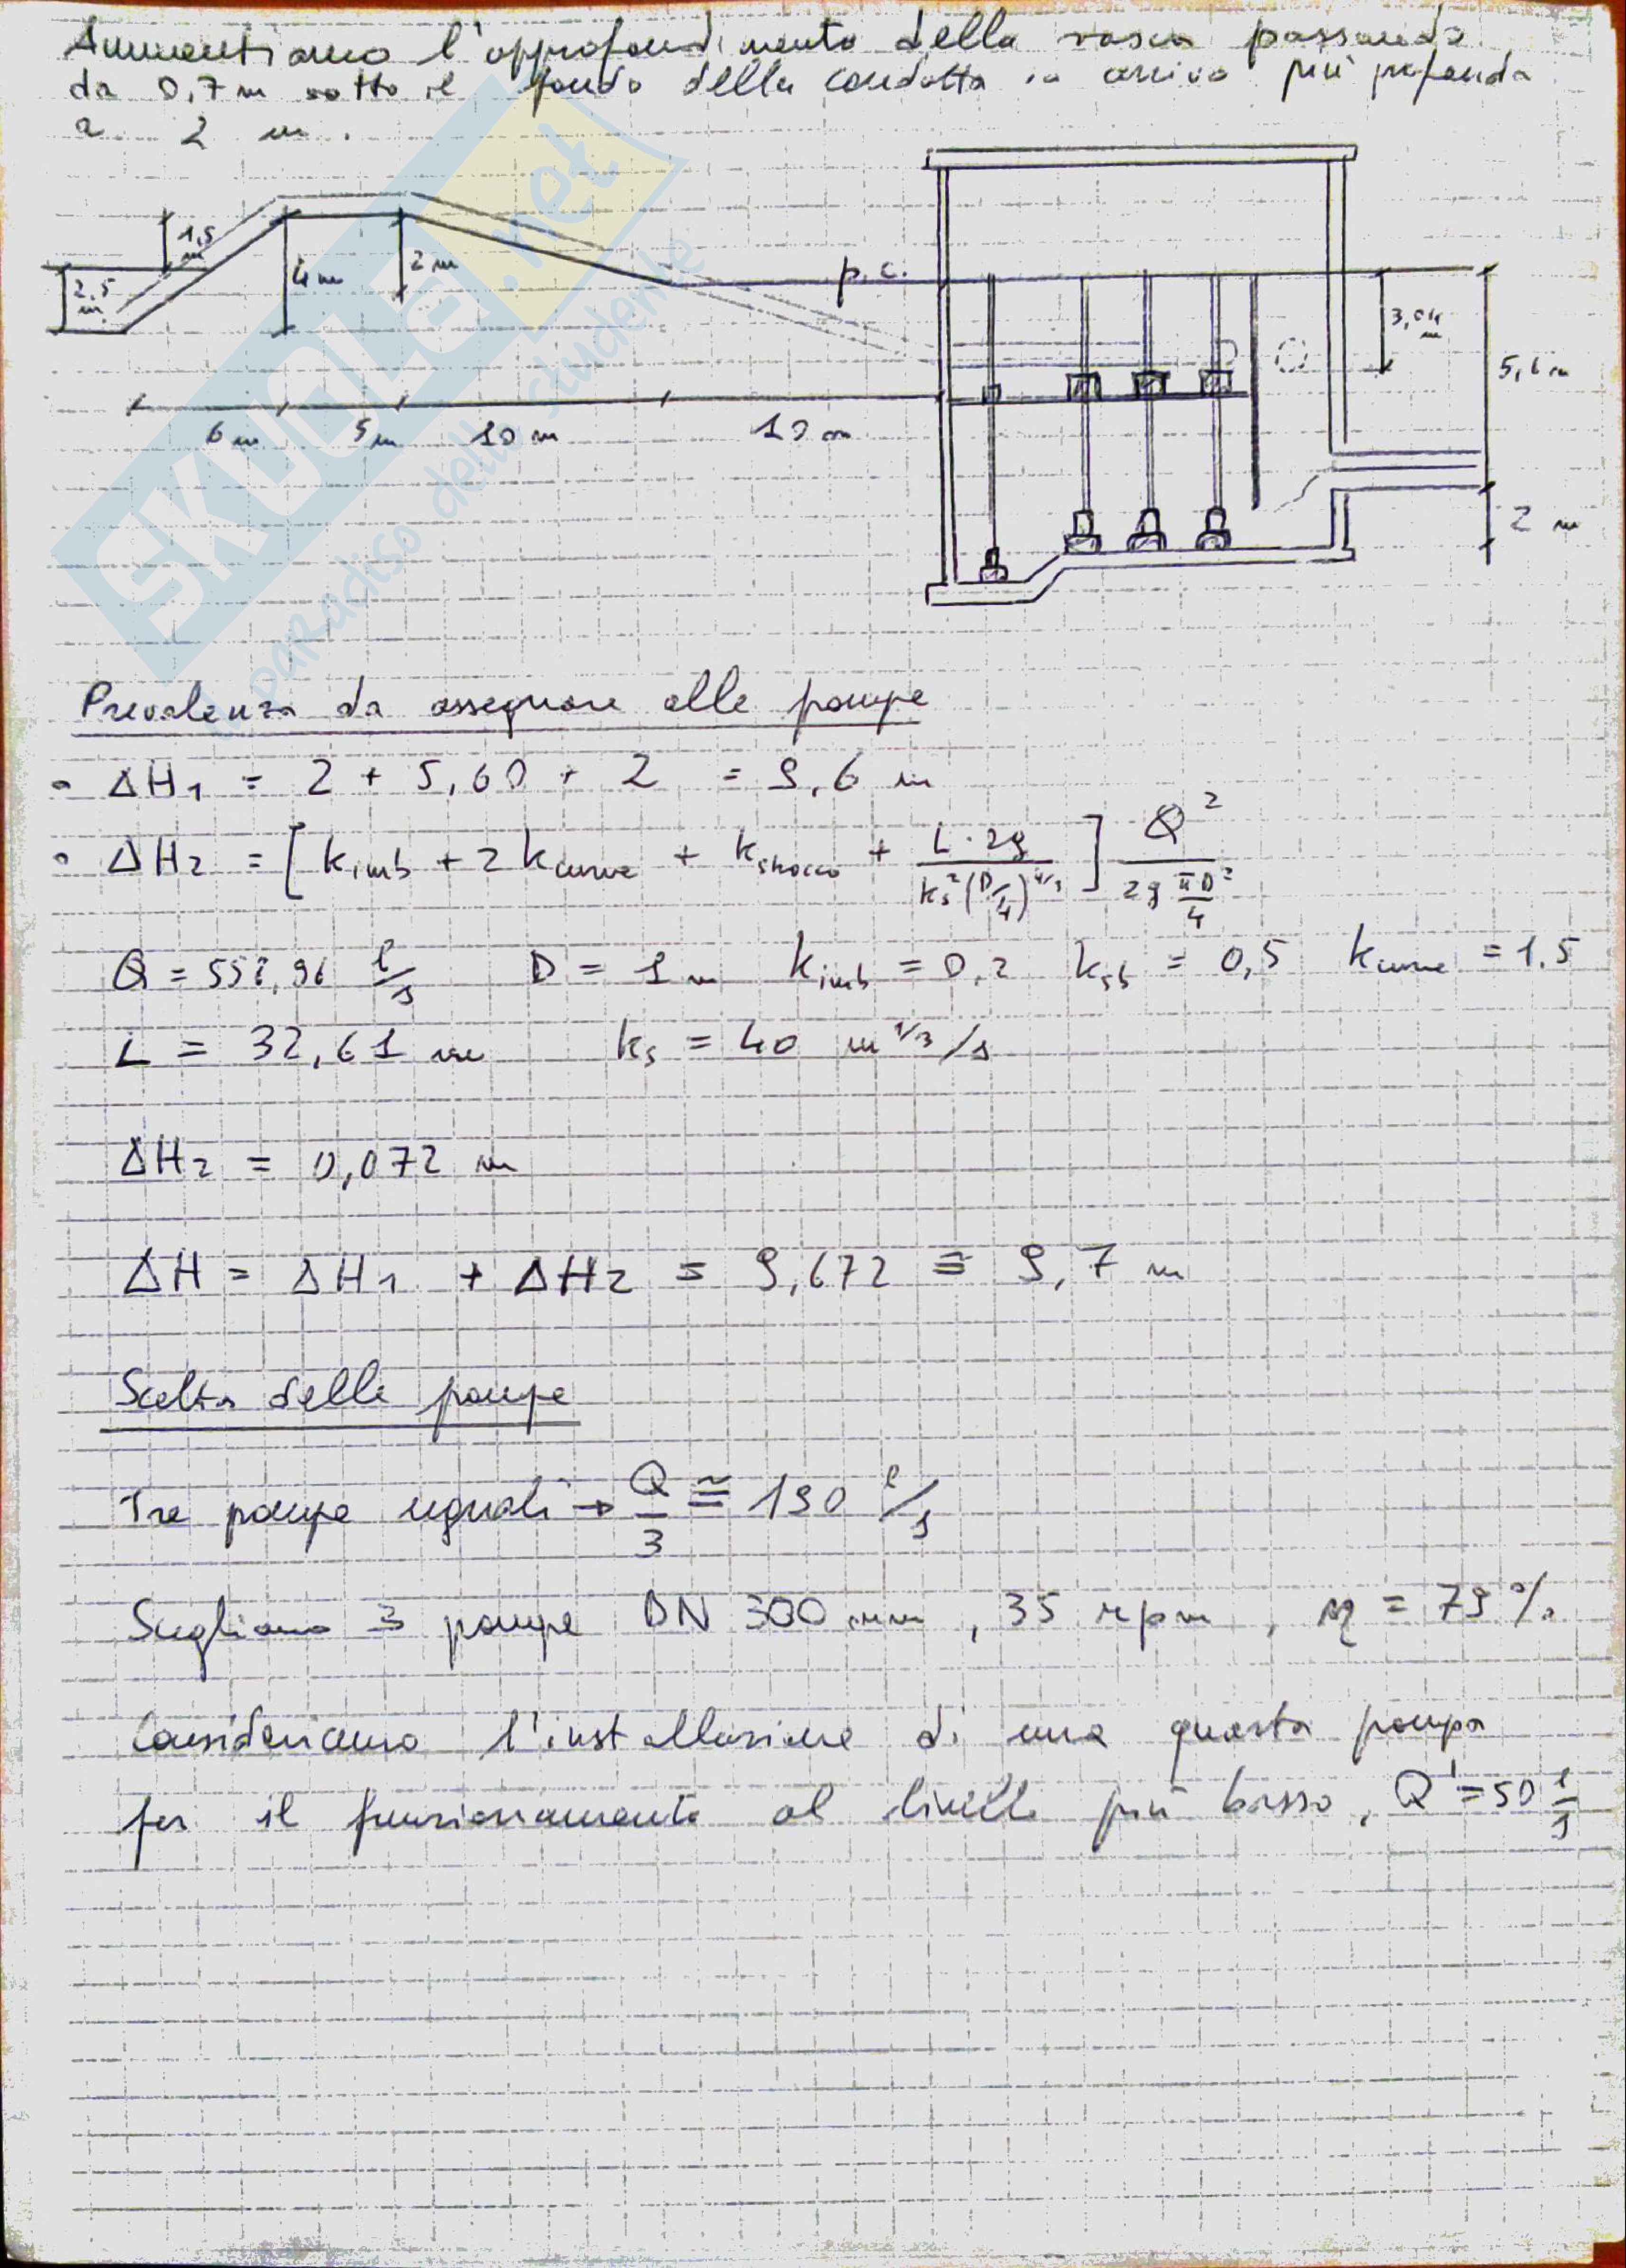 Aumentiamo l'approfondimento della vasca passando
da 0,7 m sotto il fondo della condotta in arrivo più profonda
a 2 m.
1,5 m
2,5 m
4 m
2 m
p.c.
3,04 m
5,6 m
6 m 5 m 10 m 10 m
2 m
SKUOLA.net
paradiso dello studente
Prevalenza da assegnare alle pompe
• ΔH1 = 2 + 5,60 + 2 = 9,6 m
• ΔH2 = [kimb + 2 kcurve + ksbocco + L·2g / ks²(D/4)^4/3] Q² / 2g πD²/4
Q = 557,96 l/s D = 1 m kimb = 0,2 ksb = 0,5 kcurve = 1,5
L = 32,61 m ks = 40 m^1/3/s
ΔH2 = 0,072 m
ΔH = ΔH1 + ΔH2 = 9,672 ≅ 9,7 m
Scelta delle pompe
Tre pompe uguali → Q/3 ≅ 190 l/s
Scegliamo 3 pompe DN 300 mm, 35 rpm, η = 79 %
Consideriamo l'installazione di una quarta pompa
per il funzionamento al livello più basso, Q' = 50 l/s